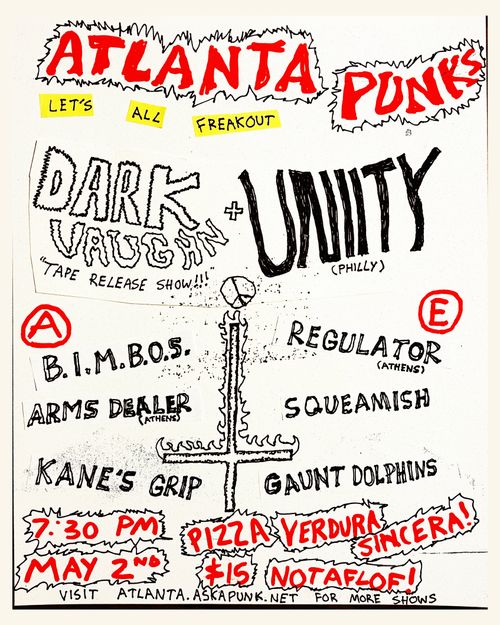 ATLANTA PUNKS
LET'S ALL FREAKOUT
DARK VAUGHN + UNIITY
"TAPE RELEASE SHOW!!!
(PHILLY)
A
E
B.I.M.B.O.S.
REGULATOR
(ATHENS)
ARMS DEALER
(ATHENS)
SQUEAMISH
KANE'S GRIP
GAUNT DOLPHINS
7:30 PM
PIZZA VERDURA SINCERA!
MAY 2ND
$15 NOTAFLOF!
VISIT ATLANTA.ASKAPUNK.NET FOR MORE SHOWS